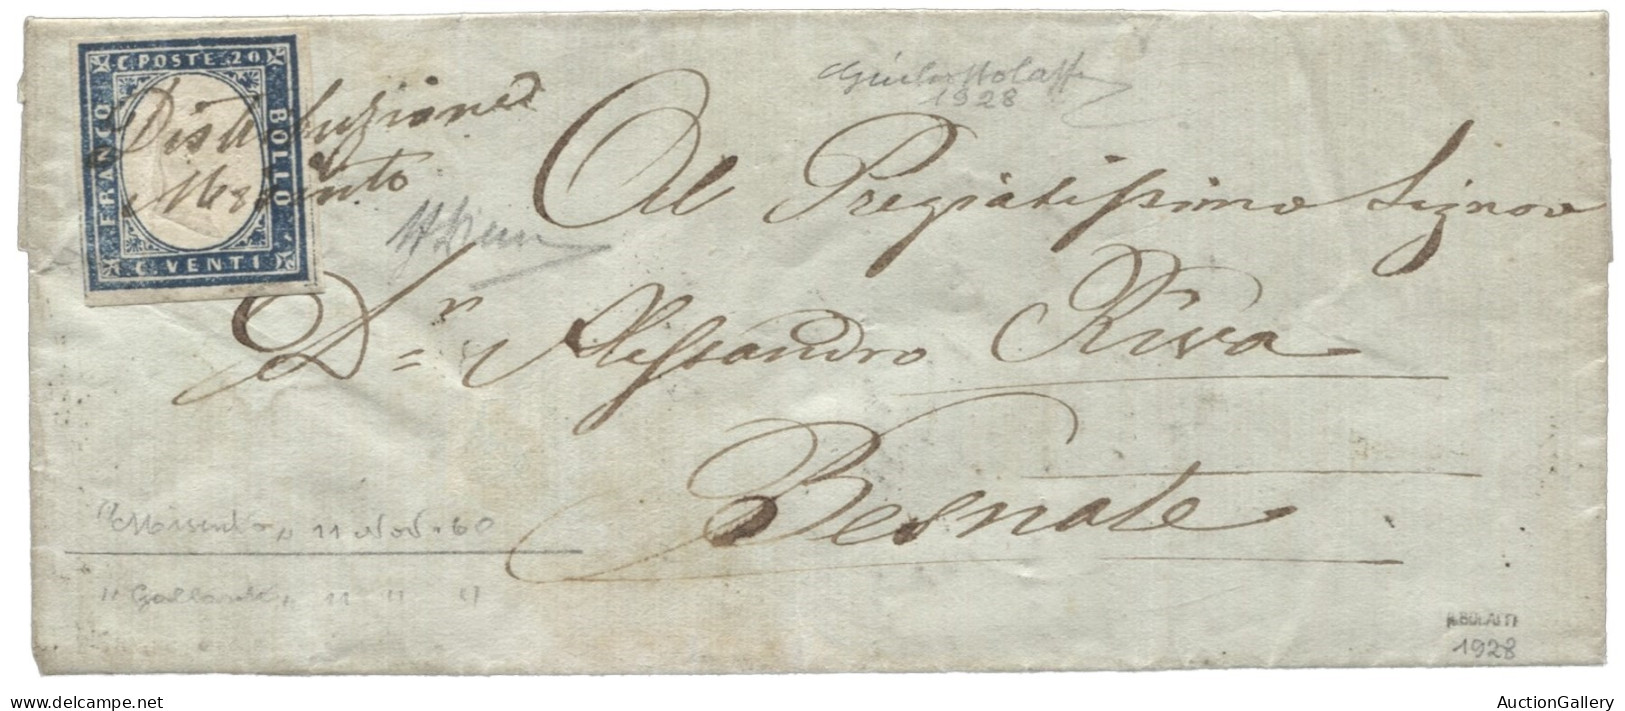 C. POSTE. 20
FRANCO
BOLLO
C. VENTI
Distribuzione di
Mesento
Giulio Bolaffi
1928
Al Pregiatissimo Signor
Dr. Alessandro Riva
Besnate
11 Nov. 60
"Gallarate" 11 " "
A. BOLAFFI
1928
delcampe.net
AuctionGallery